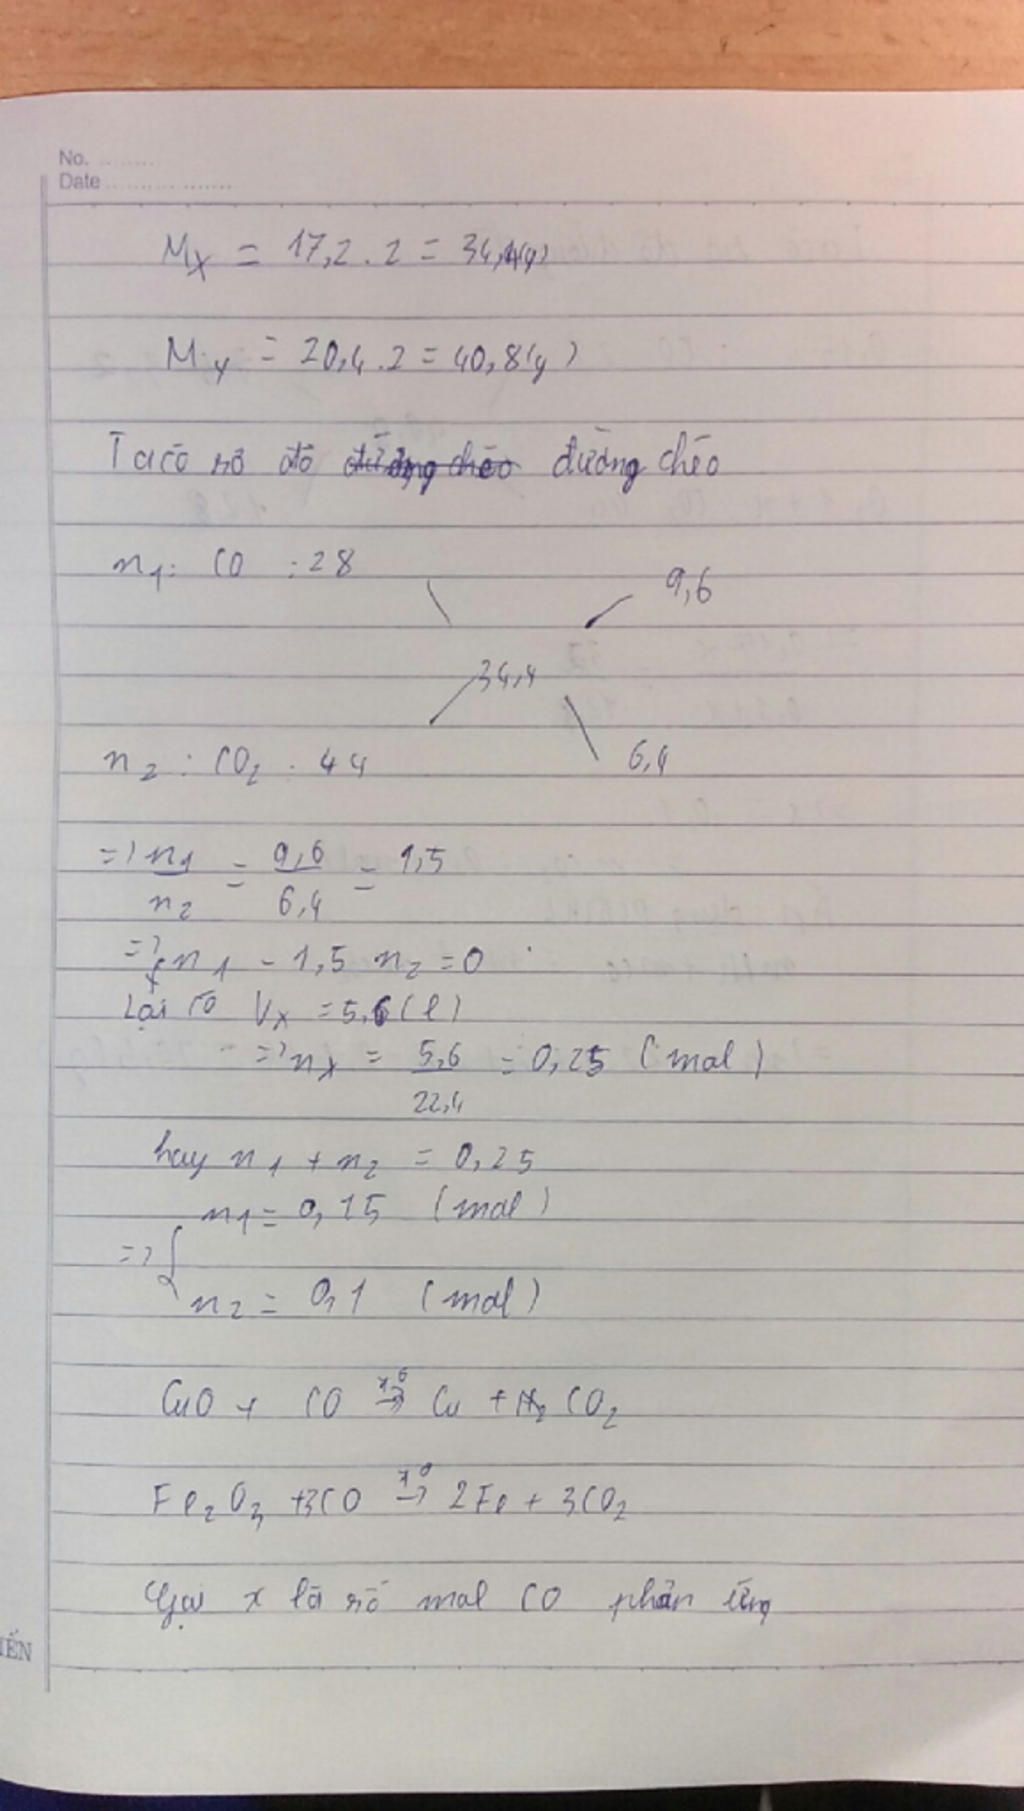 No. ........
Date ..................
Mx = 17,2 . 2 = 34,4(g)
My = 20,4 . 2 = 40,8(g)
Ta có sơ đồ đường chéo đường chéo
n1: CO : 28
9,6
34,4
n2 : CO2 : 44
6,4
=> n1/n2 = 9,6/6,4 = 1,5
=> { n1 - 1,5 n2 = 0
Lại có Vx = 5,6 (l)
=> nx = 5,6/22,4 = 0,25 (mol)
hay n1 + n2 = 0,25
=> { n1 = 0,15 (mol)
n2 = 0,1 (mol)
CuO + CO t° → Cu + CO2
Fe2O3 + 3CO t° → 2Fe + 3CO2
Gọi x là số mol CO phản ứng
IẾN